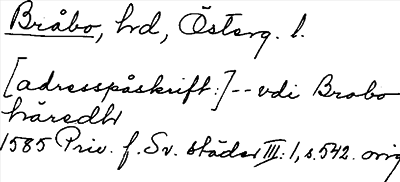 Bråbo, hrd, Österg. l.
[adresspåskrift:] -- vdi Brabo
häredh
1585 Priv. f. Sv. städer III: 1, s. 542. orig